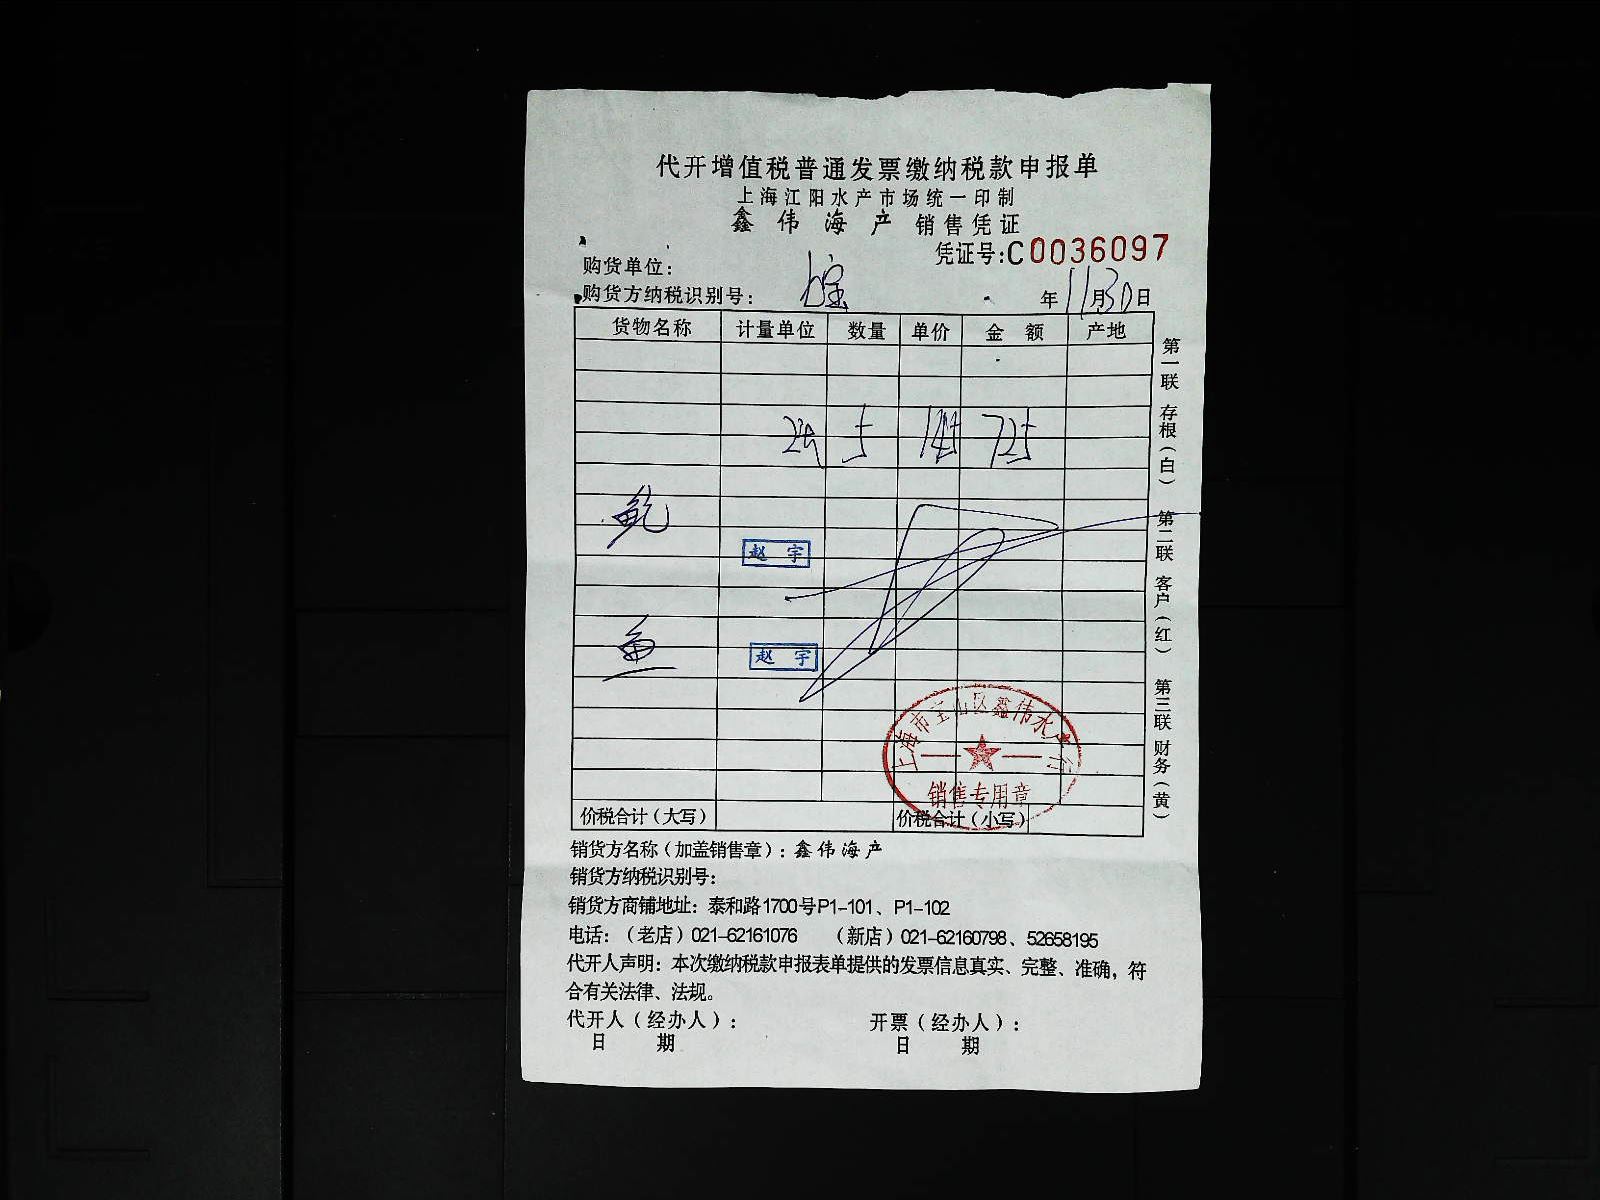 代开增值税普通发票缴纳税款申报单
上海江阳水产市场统一印制
鑫伟海产 销售凭证
凭证号:C0036097
购货单位:
购货方纳税识别号: 年11月30日
货物名称 计量单位 数量 单价 金额 产地
5 145 725
鲍
赵宇
鱼
赵宇
上海市宝山区鑫伟水产行
销售专用章
价税合计(大写) 价税合计(小写)
第一联 存根(白) 第二联 客户(红) 第三联 财务(黄)
销货方名称(加盖销售章):鑫伟海产
销货方纳税识别号:
销货方商铺地址:泰和路1700号P1-101、P1-102
电话:(老店)021-62161076 (新店)021-62160798、52658195
代开人声明:本次缴纳税款申报表单提供的发票信息真实、完整、准确,符
合有关法律、法规。
代开人(经办人): 开票(经办人):
日 期 日 期